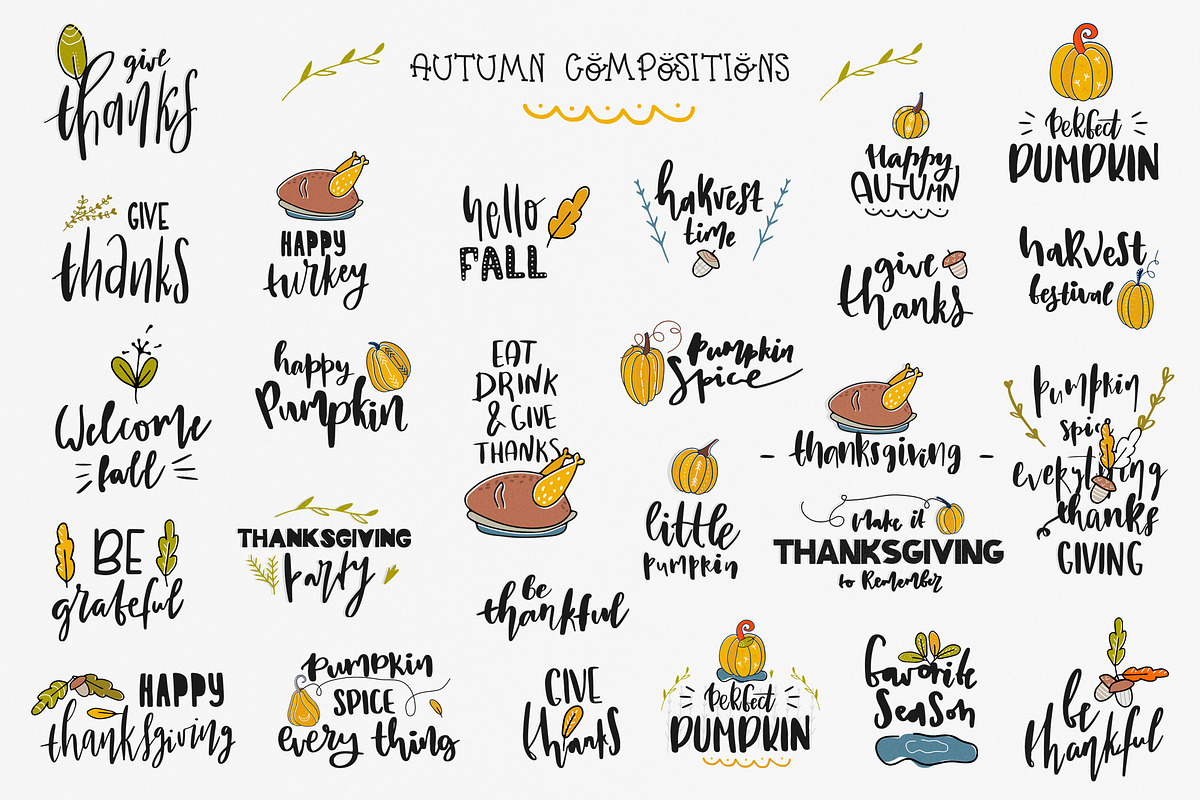 AUTUMN COMPOSITIONS
give
thanks
GIVE
thanks
Welcome
fall
BE
grateful
HAPPY
thanksgiving
HAPPY
turkey
happy
Pumpkin
THANKSGIVING
Party
Pumpkin
SPICE
every thing
hello
FALL
EAT
DRINK
& GIVE
THANKS
be
thankful
GIVE
thanks
harvest
time
Pumpkin
Spice
little
pumpkin
Perfect
PUMPKIN
Happy
AUTUMN
give
thanks
thanksgiving
Make it
THANKSGIVING
to Remember
favorite
SeaSon
Perfect
PUMPKIN
haRvest
festival
pumpkin
spice
everything
thanks
GIVING
be
thankful